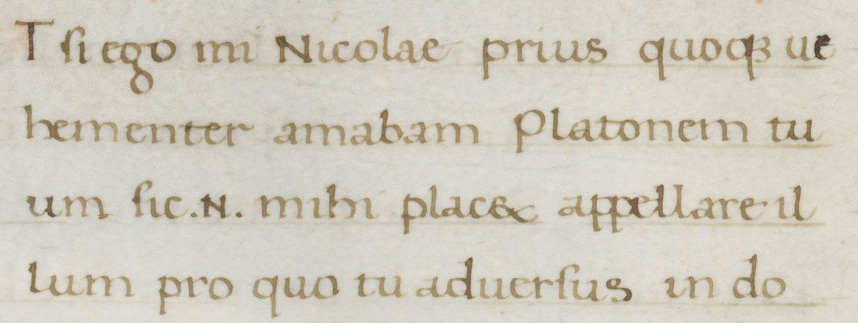 T si ego mi Nicolae prius quoqꝫ ue
hementer amabam Platonem tu
um sic .N. mihi plac& appellare il
lum pro quo tu aduersus in do